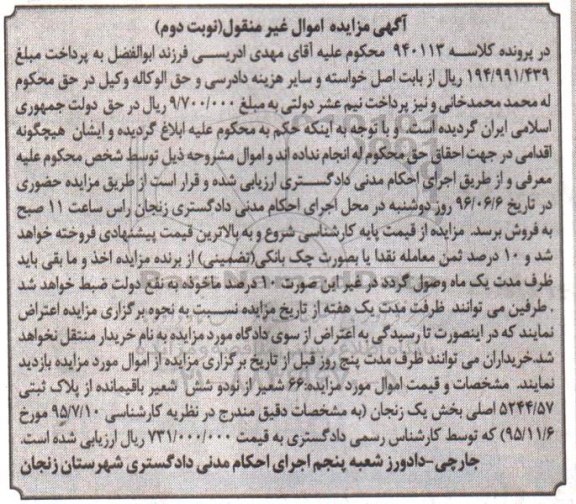 آگهی مزایده اموال غیر منقول(نوبت دوم)
در پرونده کلاسه ۹۴۰۱۱۳ محکوم علیه آقای مهدی ادریسی فرزند ابوالفضل به پرداخت مبلغ
۱۹۴/۹۹۱/۴۳۹ ریال از بابت اصل خواسته و سایر هزینه دادرسی و حق الوکاله وکیل در حق محکوم
له محمد محمدخانی و نیز پرداخت نیم عشر دولتی به مبلغ ۹/۷۰۰/۰۰۰ ریال در حق دولت جمهوری
اسلامی ایران گردیده است. و با توجه به اینکه حکم به محکوم علیه ابلاغ گردیده و ایشان هیچگونه
اقدامی در جهت احقاق حق محکوم له انجام نداده اند و اموال مشروحه ذیل توسط شخص محکوم علیه
معرفی و از طریق اجرای احکام مدنی دادگستری ارزیابی شده و قرار است از طریق مزایده حضوری
در تاریخ ۹۶/۰۶/۶ روز دوشنبه در محل اجرای احکام مدنی دادگستری زنجان راس ساعت ۱۱ صبح
به فروش برسد. مزایده از قیمت پایه کارشناسی شروع و به بالاترین قیمت پیشنهادی فروخته خواهد
شد و ۱۰ درصد ثمن معامله نقدا یا بصورت چک بانکی(تضمینی) از برنده مزایده اخذ و ما بقی باید
ظرف مدت یک ماه وصول گردد در غیر این صورت ۱۰ درصد ماخوذه به نفع دولت ضبط خواهد شد
. طرفین می توانند ظرفت مدت یک هفته از تاریخ مزایده نسبت به نحوه برگزاری مزایده اعتراض
نمایند که در اینصورت تا رسیدگی به اعتراض از سوی دادگاه مورد مزایده به نام خریدار منتقل نخواهد
شد.خریداران می توانند ظرف مدت پنج روز قبل از تاریخ برگزاری مزایده از اموال مورد مزایده بازدید
نمایند. مشخصات و قیمت اموال مورد مزایده:۶۶ شعیر از نودو شش شعیر باقیمانده از پلاک ثبتی
۵۲۴۴/۵۷ اصلی بخش یک زنجان (به مشخصات دقیق مندرج در نظریه کارشناسی ۹۵/۷/۱۰ مورخ
۹۵/۱۱/۶) که توسط کارشناس رسمی دادگستری به قیمت ۷۳۱/۰۰۰/۰۰۰ ریال ارزیابی شده است.
جارچی-دادورز شعبه پنجم اجرای احکام مدنی دادگستری شهرستان زنجان